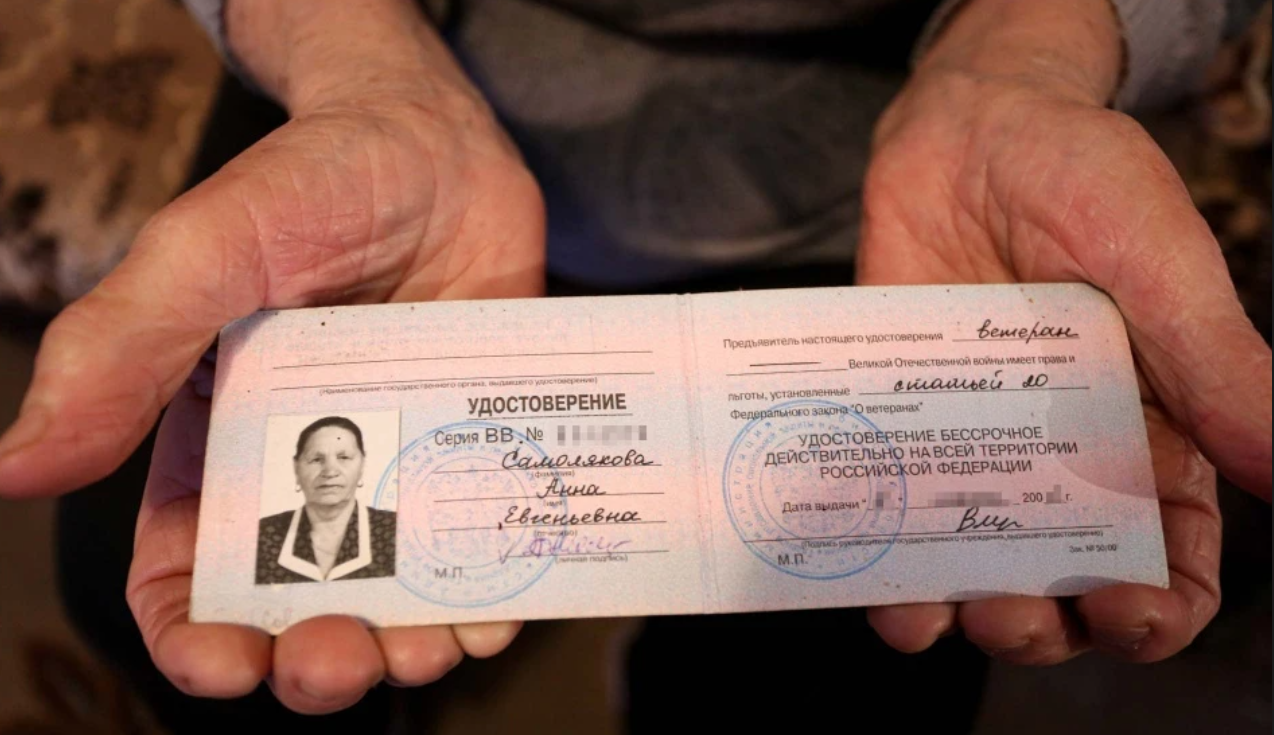 (Наименование государственного органа, выдавшего удостоверение)
УДОСТОВЕРЕНИЕ
Серия ВВ №
Самолякова
(фамилия)
Анна
(имя)
Евгеньевна
(отчество)
(личная подпись)
М.П.
Предъявитель настоящего удостоверения ветеран
Великой Отечественной войны имеет права и
льготы, установленные статьей 20
Федерального закона "О ветеранах"
УДОСТОВЕРЕНИЕ БЕССРОЧНОЕ
ДЕЙСТВИТЕЛЬНО НА ВСЕЙ ТЕРРИТОРИИ
РОССИЙСКОЙ ФЕДЕРАЦИИ
Дата выдачи " 200 г.
(подпись руководителя государственного учреждения, выдавшего удостоверение)
М.П.